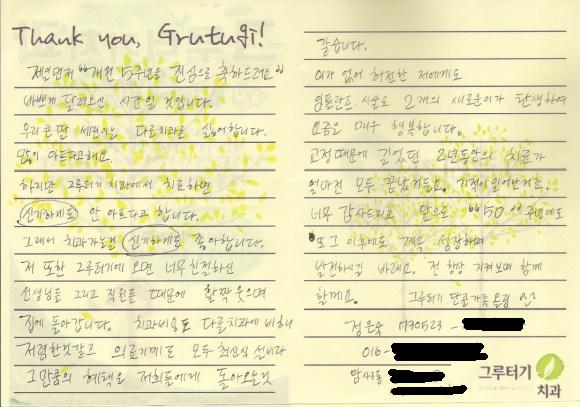 Thank you, Grutugi!
제일먼저 "개원 5주년을 진심으로 축하드려요"
바쁘게 달려오신 시간일 것입니다.
우리 큰 딴 세린이는 다른치과를 싫어합니다.
많이 아프다고해요.
하지만 그루터기 치과에서 치료하면
신기하게도 안 아프다고 합니다.
그래서 치과가는걸 신기하게도 좋아합니다.
저 또한 그루터기에 오면 너무 친절하신
선생님들 그리고 직원들 때문에 활짝 웃으며
집에 돌아갑니다. 치과비용도 다른치과에 비해
저렴한것같고 의료기계도 모두 최신식 설비라
그만큼의 혜택을 저희들에게 돌아오는것
같습니다.
이가 없어 허전한 저에게도
임플란트 시술로 2개의 새로운이가 탄생하여
요즘은 매우 행복합니다.
교정때문에 길었던 2년동안의 치료가
얼마전 모두 끝났거든요. 기적이 일어난거죠.
너무 감사드리고 앞으로 "50" 주년에도
또 그 이후에도 계속 성장하며
발전하시길 바래요. 전 항상 지켜보며 함께
할께요. 그루터기 단골가족 올림
정은숙 770523 -
016 -
암사동
그루터기
치과